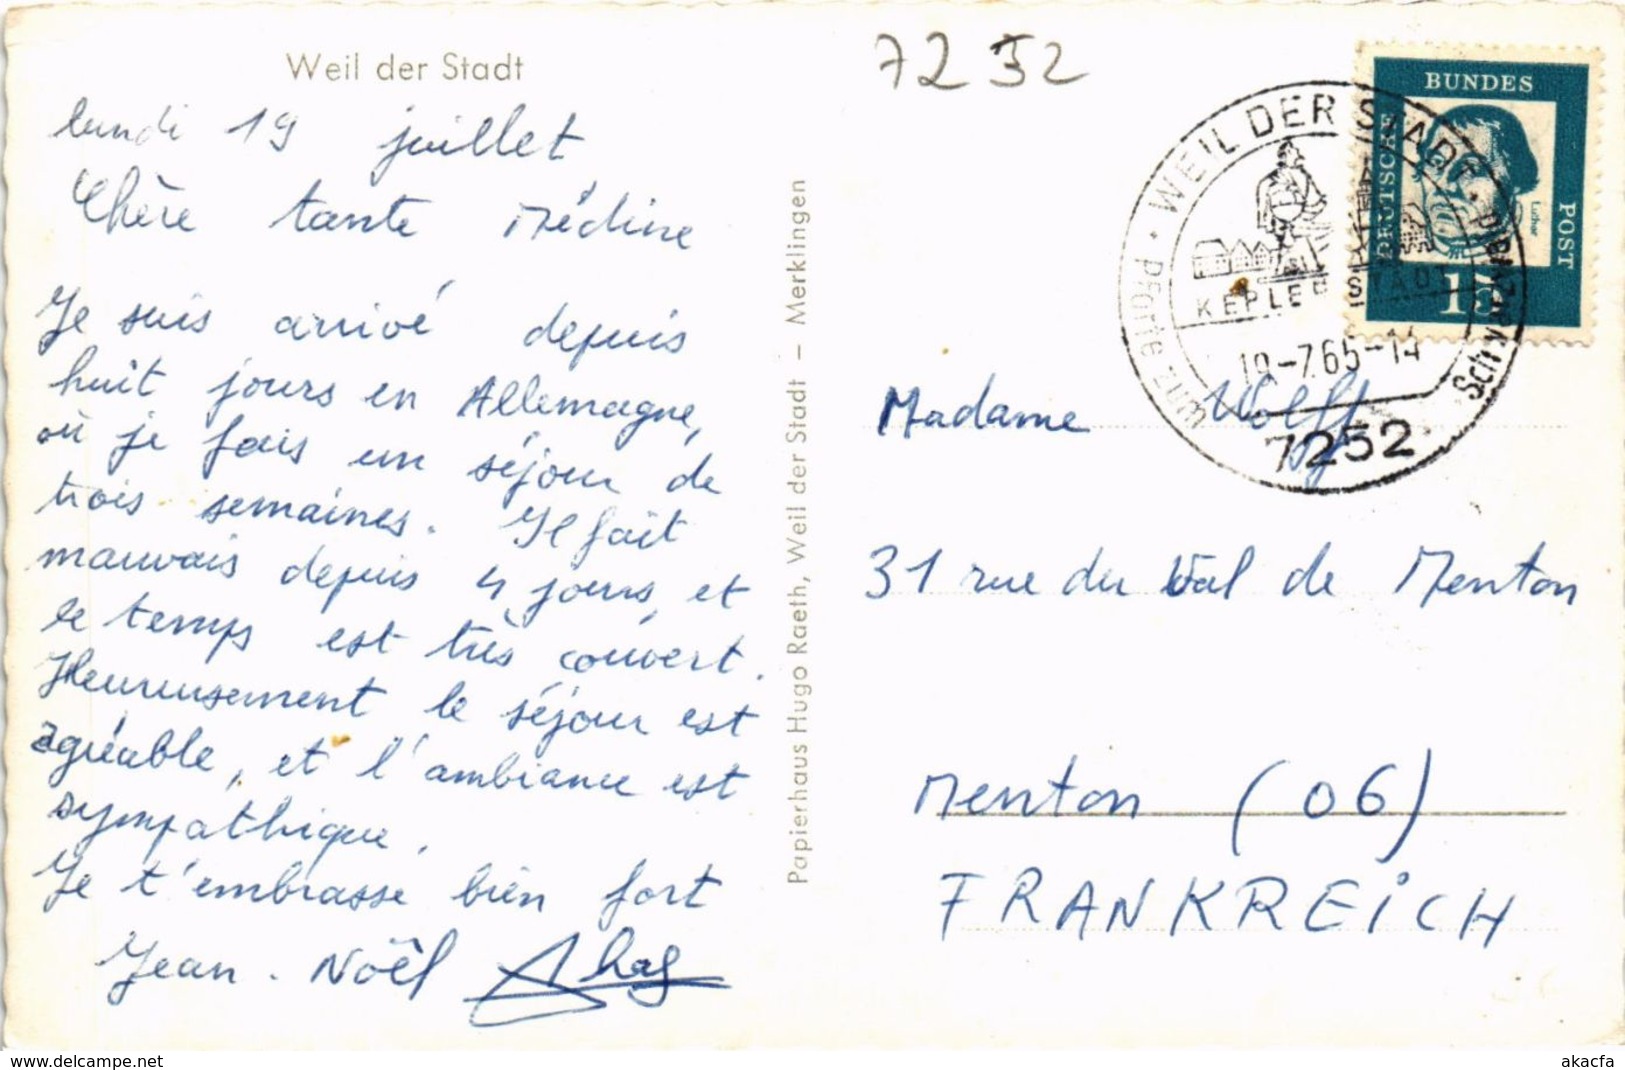 Weil der Stadt
lundi 19 juillet
Chère tante Médine
Je suis arrivé depuis
huit jours en Allemagne,
où je fais un séjour de
trois semaines. Il fait
mauvais depuis 4 jours, et
le temps est très couvert.
Heureusement le séjour est
agréable, et l'ambiance est
sympathique.
Je t'embrasse bien fort
Jean-Noël
Papierhaus Hugo Raeth, Weil der Stadt – Merklingen
7252
WEIL DER STADT
KEPLERSTADT
19-7.65-14
7252
BUNDES
DEUTSCHE
POST
Luther
15
Madame Wolff
31 rue du Val de Menton
Menton (06)
FRANKREICH
www.delcampe.net
akacfa